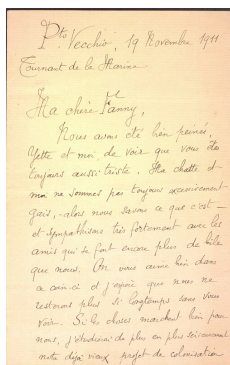 Pto Vecchio, 19 Novembre 1911
Tournant de la Marine
Ma chère Fanny,
Nous avons été bien peinés,
Yette et moi de voir que vous êtes
toujours aussi triste. Ma chatte et
moi ne sommes pas toujours excessivement
gais, - alors nous savons ce que c'est —
et sympathisons très fortement avec les
amis qui se font encore plus de bile
que nous. On vous aime bien dans
ce coin-ci et j'espère que nous ne
resterons plus si longtemps sans vous
voir. Si les choses marchent bien pour
nous, j'étudierai de plus en plus sérieusement
notre déjà vieux projet de colonisation